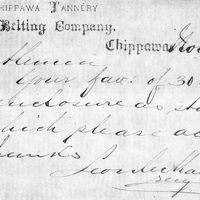 CHIPPAWA TANNERY
Belting Company,
Chippawa, Nov
tlemen
Your fav: of 30
enclosure as sta
which please ac
thanks
Secy